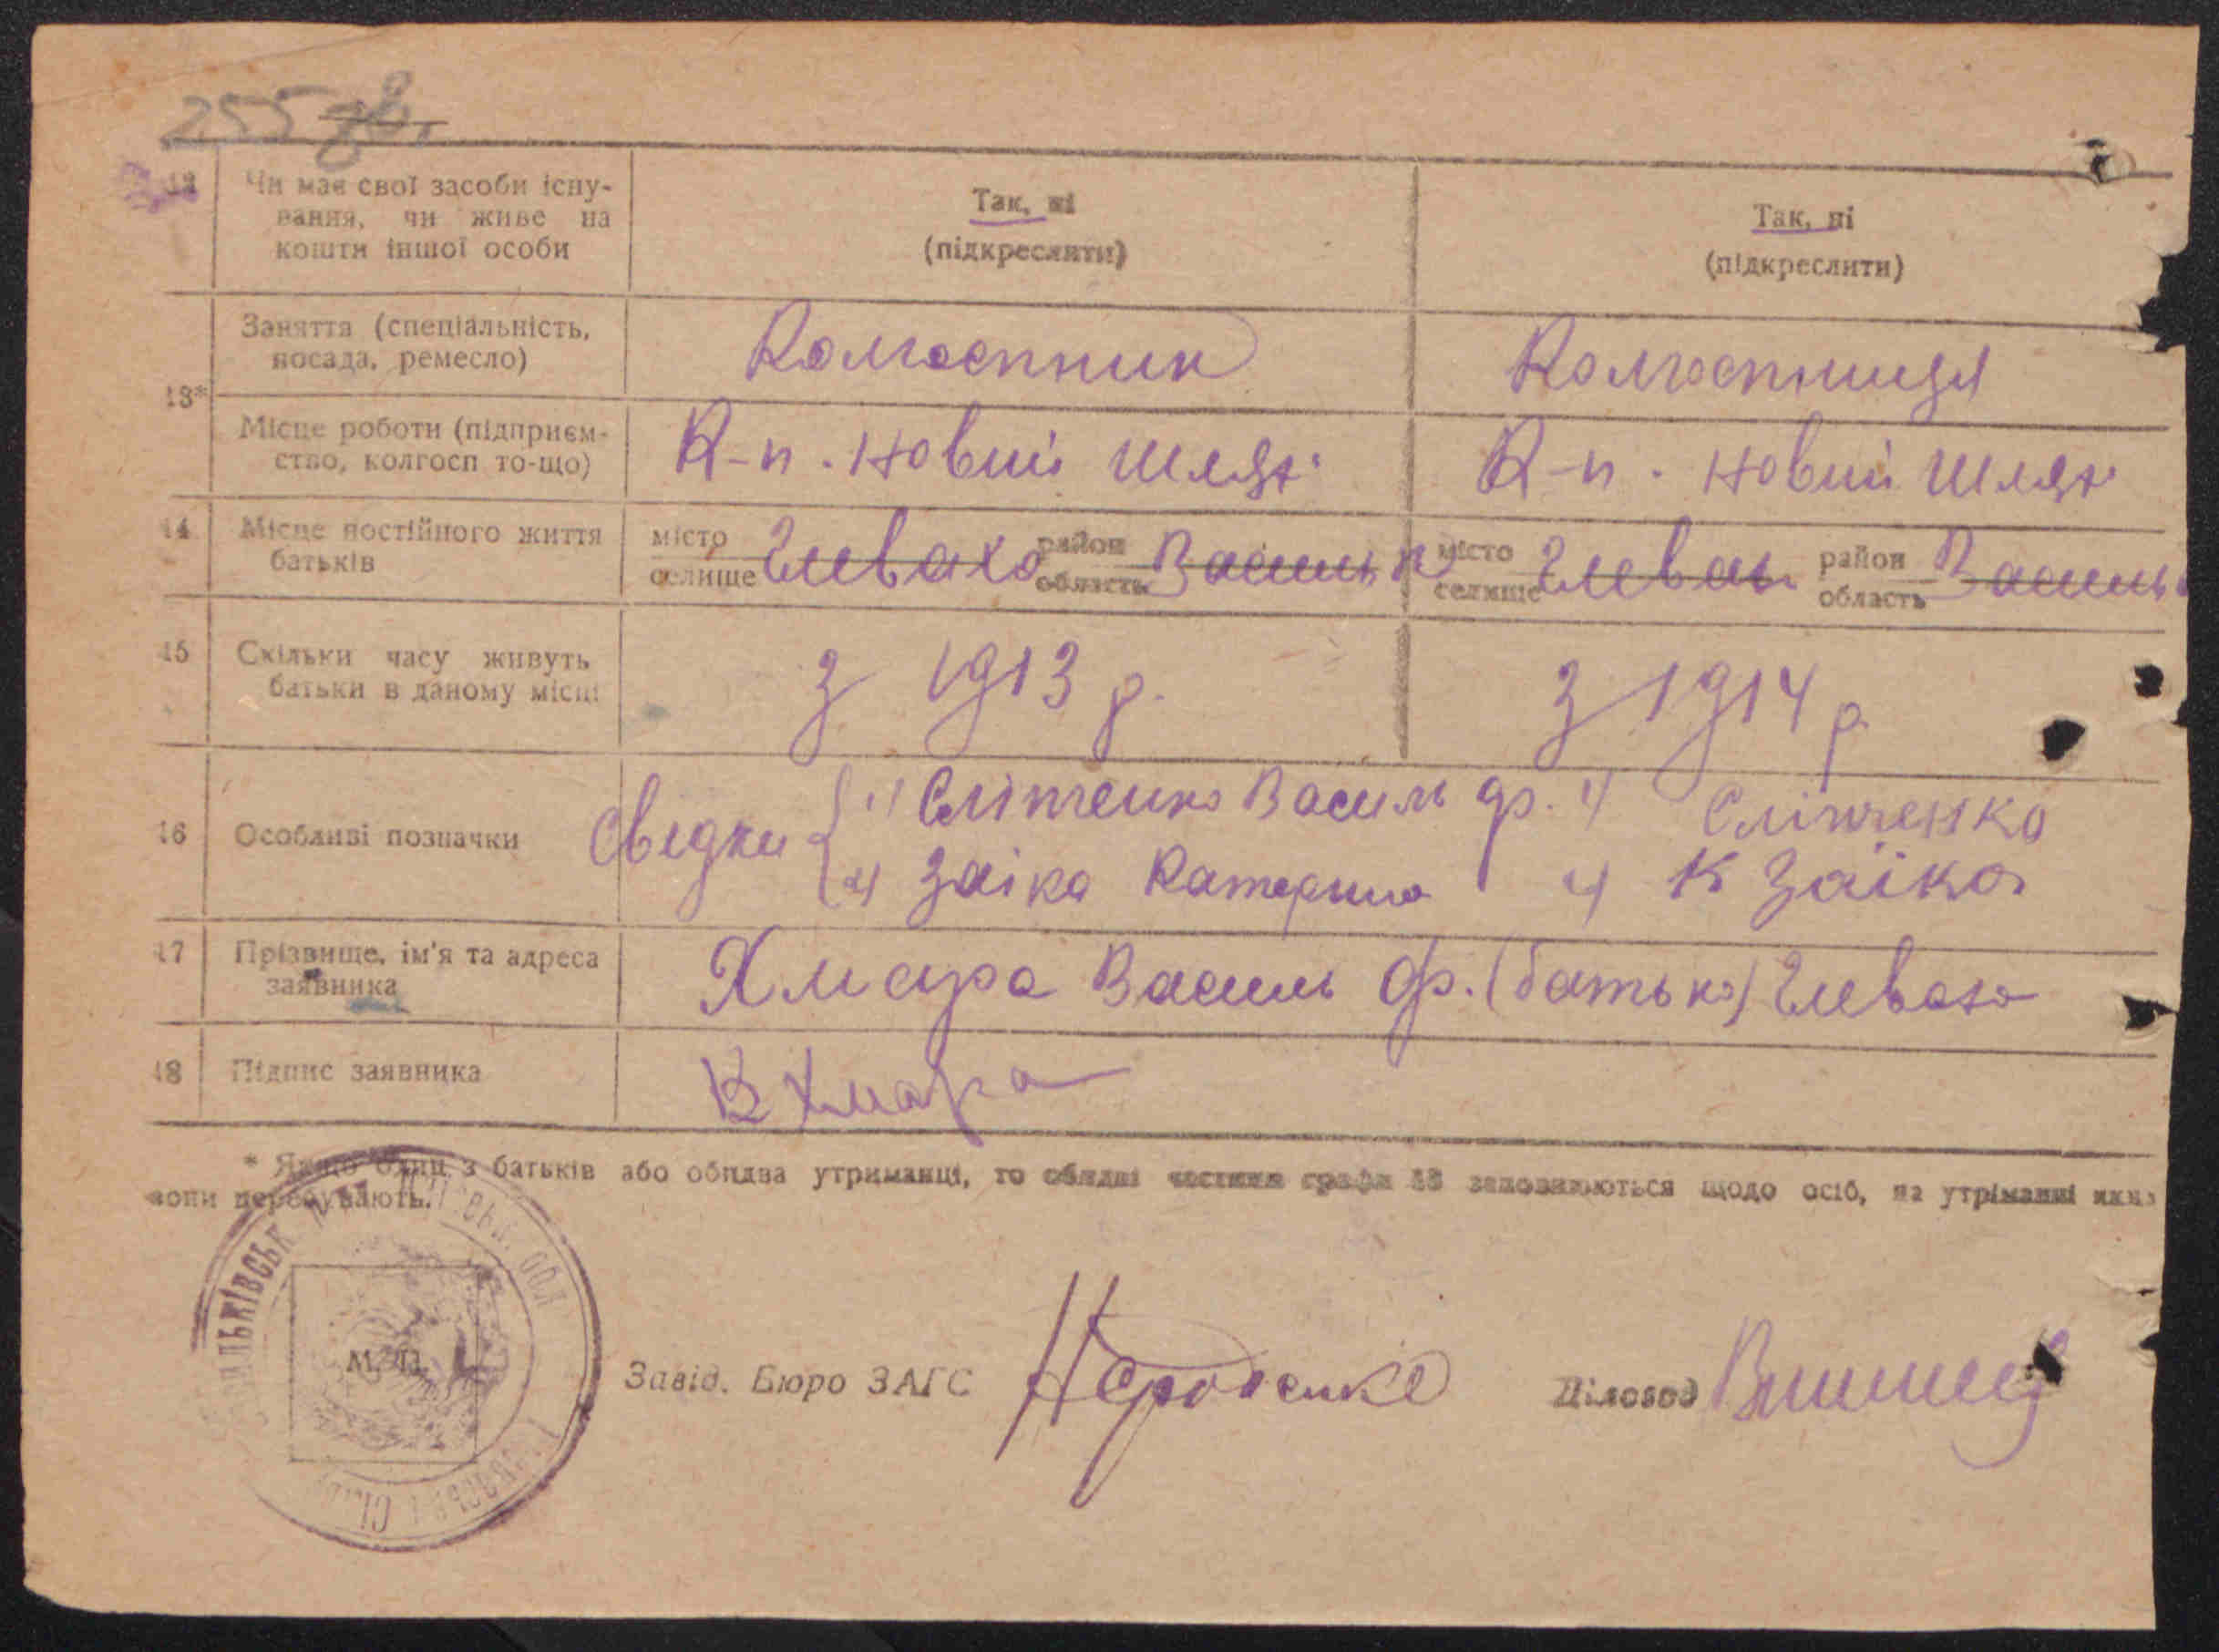 255 зв.
12 Чи має свої засоби існу-
вання, чи живе на
кошти іншої особи
Так, ні
(підкреслити)
Так, ні
(підкреслити)
13*
Заняття (спеціальність,
посада, ремесло)
Колгоспник
Колгоспниця
Місце роботи (підприєм-
ство, колгосп то-що)
К-п. Новий Шлях
К-п. Новий Шлях
14 Місце постійного життя
батьків
місто
селище
Глеваха
район
область
Васильк
місто
селище
Глеваха
район
область
Васильк
15 Скільки часу живуть
батьки в даному місці
З 1913 р.
З 1914 р.
16 Особливі позначки
Свідки
1) Сліпченко Василь Ф. 1) Сліпченко
2) Заіка Катерина 2) К Заіка
17 Прізвище, ім'я та адреса
заявника
Хмара Василь Ф. (батько) Глеваха
18 Підпис заявника
В Хмара
* Якщо один з батьків або обидва утриманці, то обидві частини графи 13 заповнюються щодо осіб, на утриманні яких
вони перебувають.
М. П.
Завід. Бюро ЗАГС
Діловод